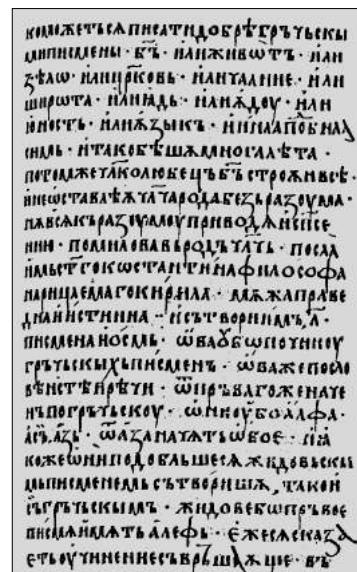 коможетьсѧписатидобрѣгръчьскы
миписмены · б҃ъ · илиживѡтъ · или
ѕѣлѡ · илицр҃ковь · иличаание · или
широта · илиꙗдь · илиѫдоу · или
юность · илиѫзыкъ · ииинаапо҃бнаа
симь · итакобѣшѫмногалѣта ·
потомжечл҃колюбецъбъ҃строѫивсѣ ·
инеѡставлѣѫчл҃чародабезьразоума ·
нѫвсѧкъразоумоуприводѧиисп҃се
нию · помиловавьродъчл҃чь · посла
имьст҃гокѡстантинафилософа
нарицаемагокирила · мѫжаправе
днаиистинна · исътвориимъ ·л҃·
писменаиосмь · ѡваоубѡпочиноу
гръчьскыхьписменъ · ѡважепосло
вѣнстѣирѣчи · ѿпръвагоженаче
нъпогръчьскоу · ѡниоубоалфа ·
асъ азъ · ѿазаначѧтъѡбое · ꙗ
кожеѡниподобльшесѧжидовьскы
мьписменемьсътворишѧ · такои
сьгръчьскымъ · жидовебѡпръвое
писмѧимѫтьалефь · ежесѧсказа
етьоучениесъвръшаѫще · въ